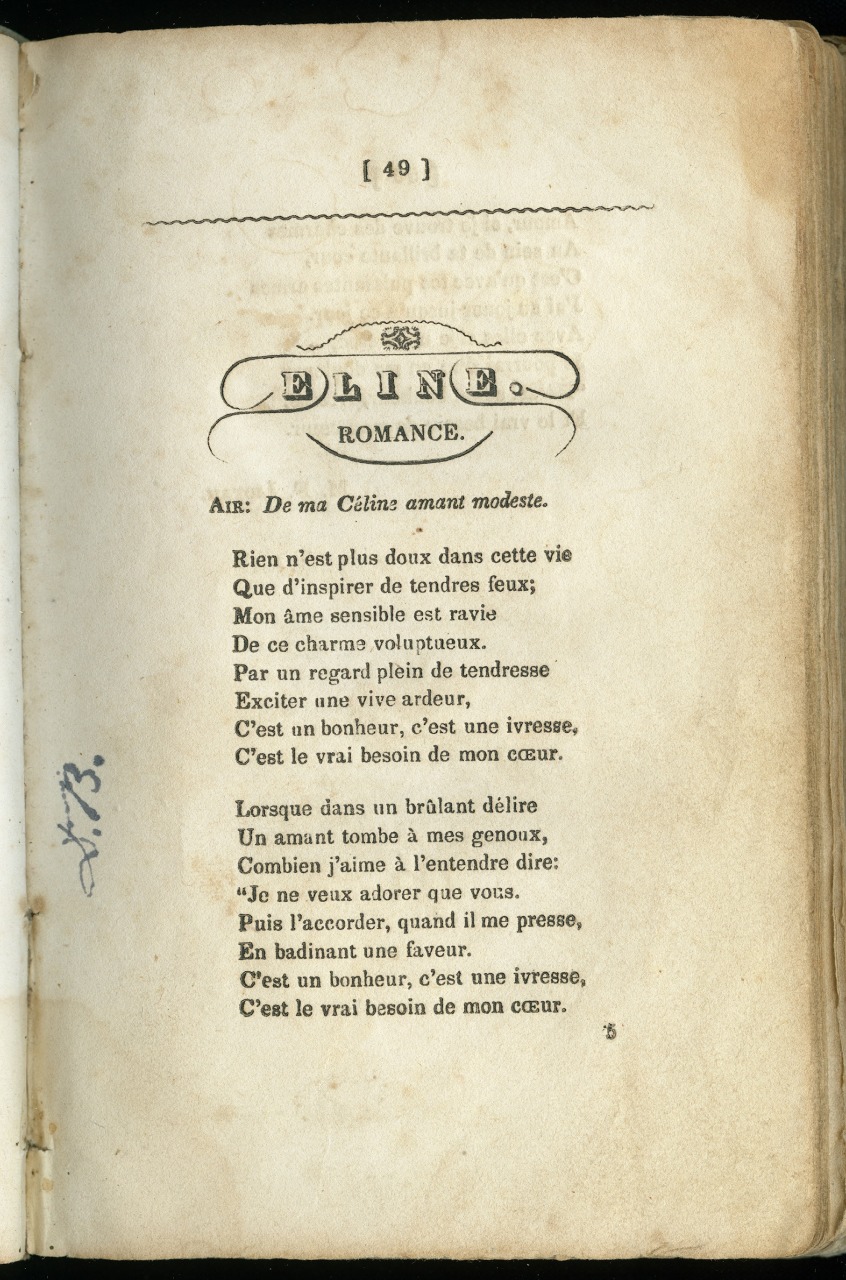 [ 49 ]
ELINE.
ROMANCE.
AIR: De ma Céline amant modeste.
Rien n'est plus doux dans cette vie
Que d'inspirer de tendres feux;
Mon âme sensible est ravie
De ce charme voluptueux.
Par un regard plein de tendresse
Exciter une vive ardeur,
C'est un bonheur, c'est une ivresse,
C'est le vrai besoin de mon cœur.
Lorsque dans un brûlant délire
Un amant tombe à mes genoux,
Combien j'aime à l'entendre dire:
“Je ne veux adorer que vous.
Puis l'accorder, quand il me presse,
En badinant une faveur.
C'est un bonheur, c'est une ivresse,
C'est le vrai besoin de mon cœur.
5